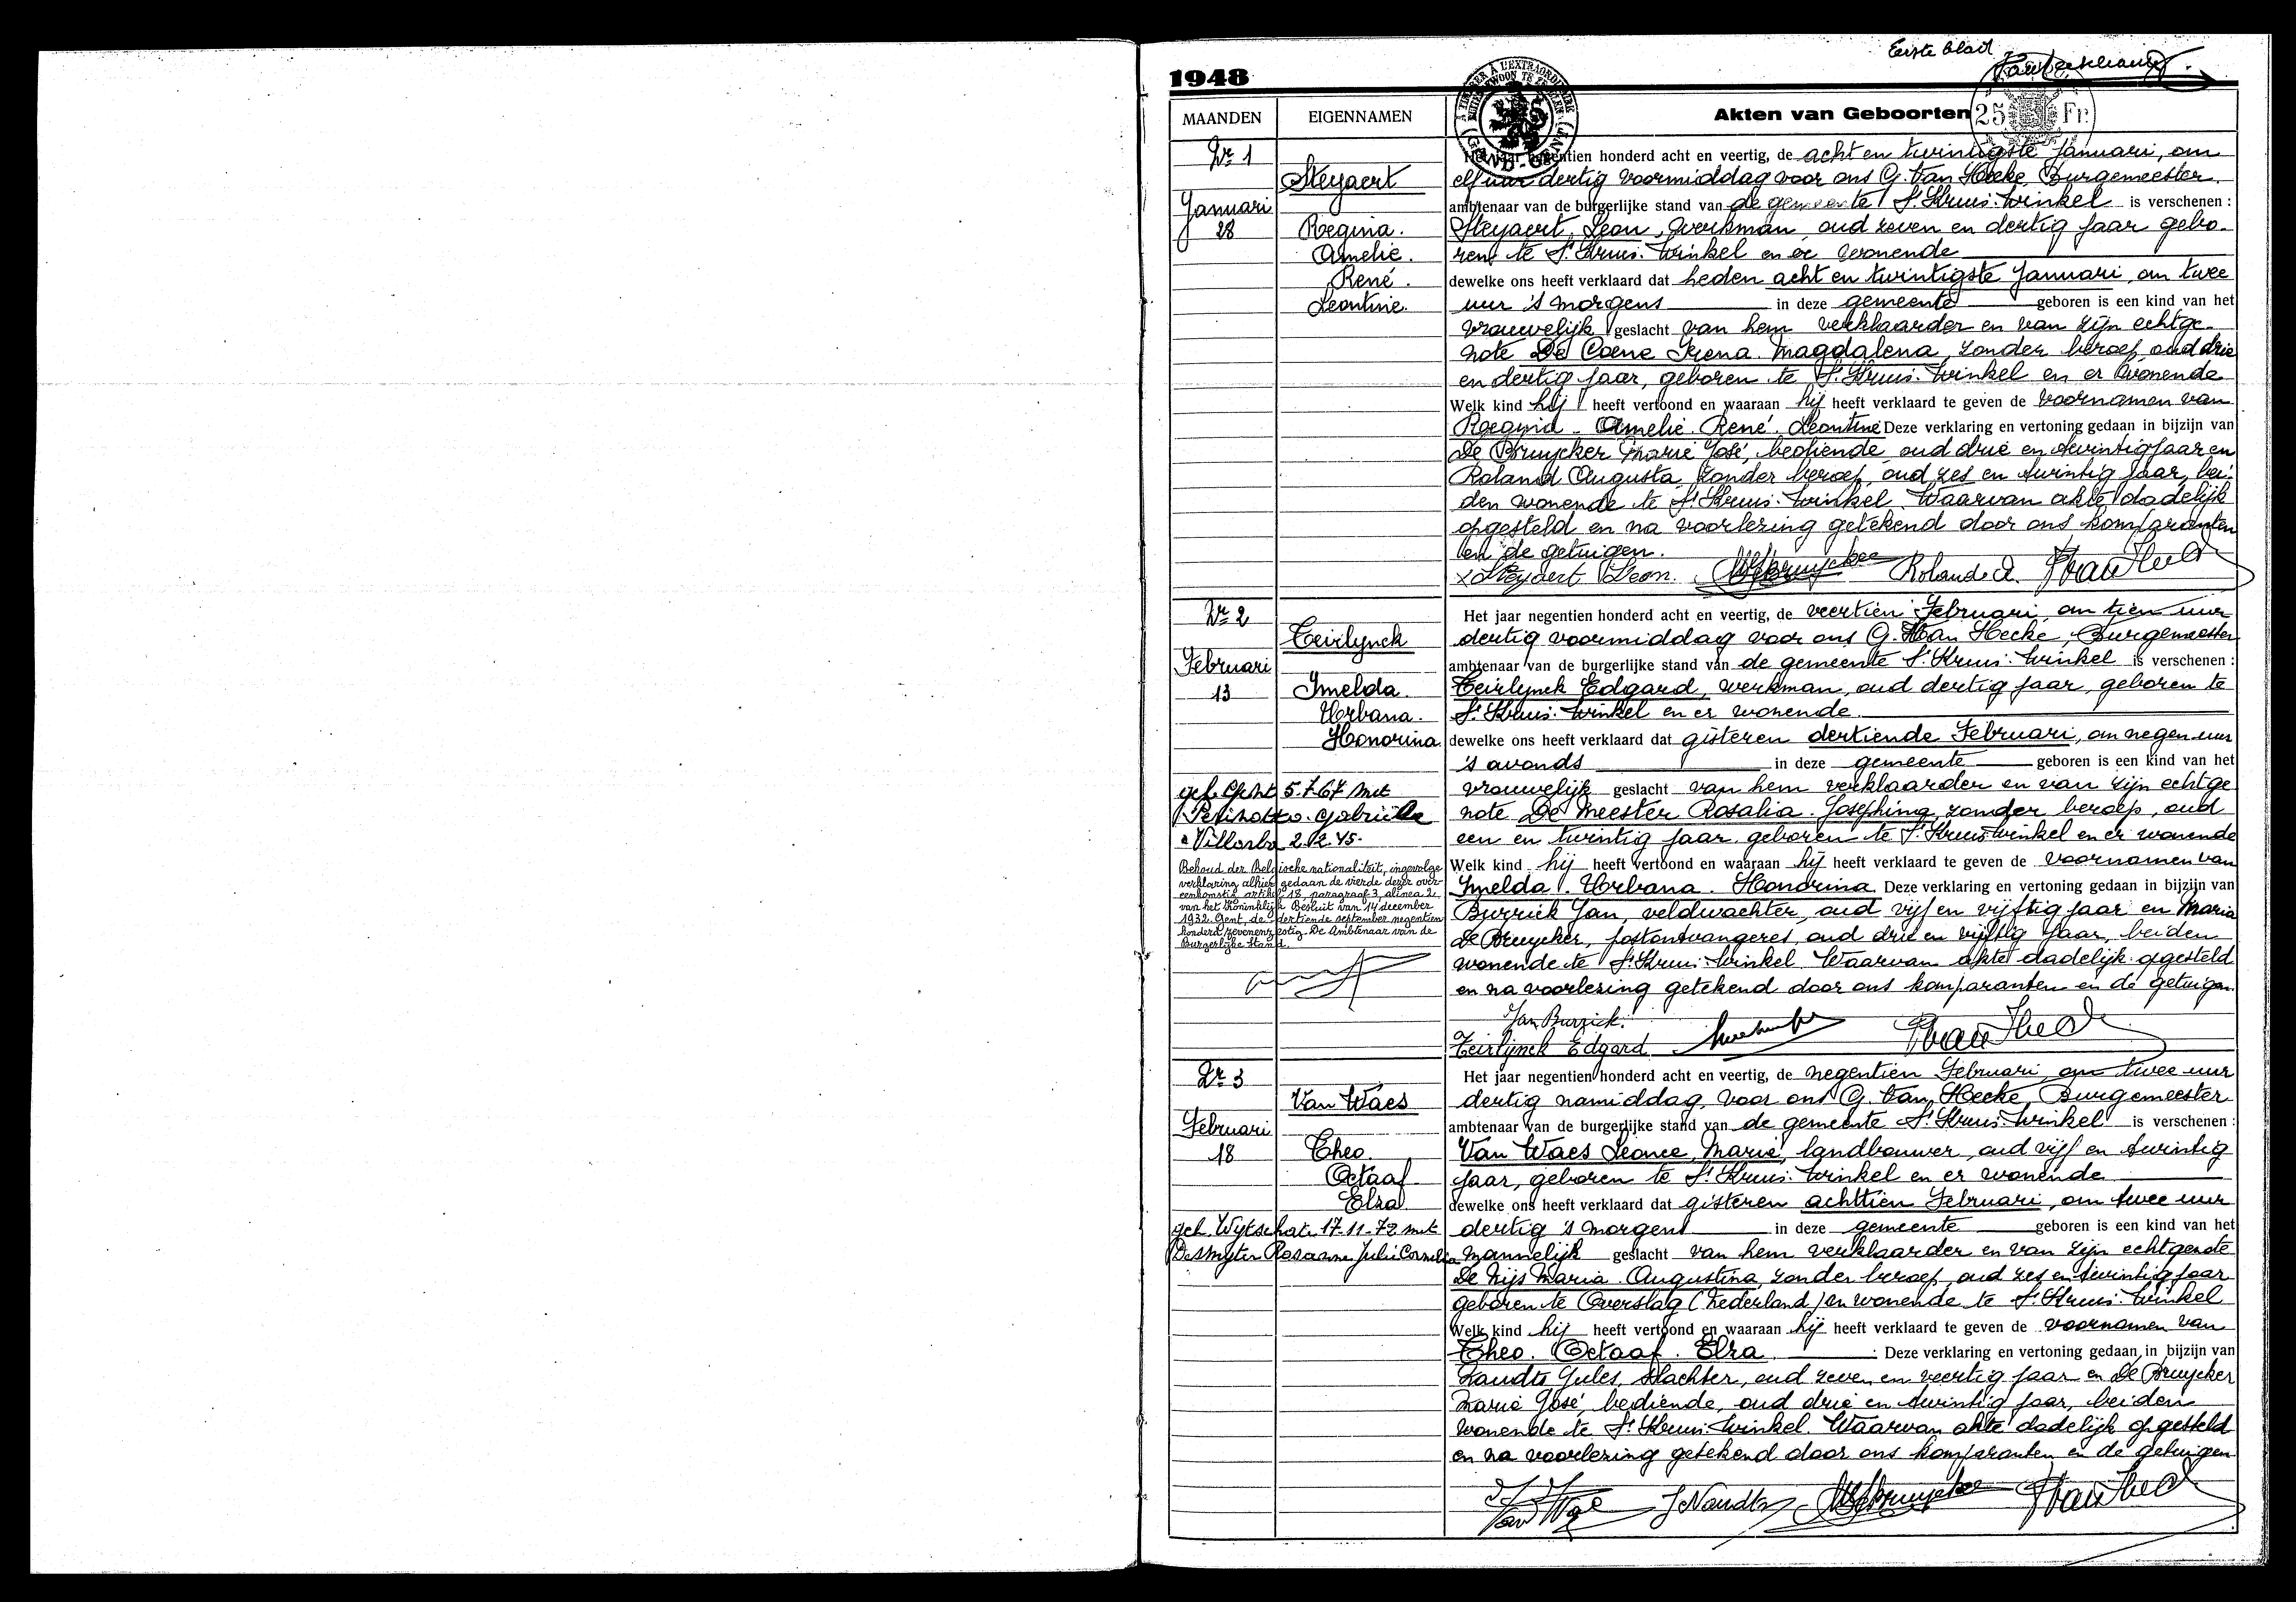 Eerste blad
1948
MAANDEN
EIGENNAMEN
Akten van Geboorten
25 Fr.
Nr 1
Steyaert
Januari
28
Regina.
Amelie.
René.
Leontine.
Het jaar negentien honderd acht en veertig, de acht en twintigste Januari, om
elf uur dertig voormiddag voor ons G. Van Hecke, Burgemeester
ambtenaar van de burgerlijke stand van de gemeente St Kruis-Winkel is verschenen :
Steyaert, Leon, werkman, oud zeven en dertig jaar gebo-
ren te St Kruis-Winkel en er wonende
dewelke ons heeft verklaard dat heden acht en twintigste Januari, om twee
uur 's morgens in deze gemeente geboren is een kind van het
vrouwelijk geslacht van hem verklaarder en van zijn echtge-
note De Coene Irena Magdalena, zonder beroep, oud drie
en dertig jaar, geboren te St Kruis-Winkel en er wonende
Welk kind hij heeft vertoond en waaraan hij heeft verklaard te geven de voornamen van
Regina - Amelie. René. Leontine Deze verklaring en vertoning gedaan in bijzijn van
De Bruycker Marie José, bediende, oud drie en twintig jaar en
Roland Augusta, zonder beroep, oud zes en twintig jaar, bei-
den wonende te St Kruis-Winkel. Waarvan akte dadelijk
opgesteld en na voorlezing getekend door ons komparanten
en de getuigen.
x Steyaert Leon. MJDebruycker Roland A. GVanHecke
Nr 2
Teirlynck
Februari
13
Imelda.
Urbana.
Honorina.
geh. Gent 5.7.67 met
° Villorba 2.12.45.
Behoud der Belgische nationaliteit, ingevolge
verklaring alhier gedaan de vierde dezer over-
eenkomstig artikel 18, paragraaf 3, alinea 2,
van het Koninklijk Besluit van 14 december
1932. Gent, de dertiende september negentien
honderd zevenenzestig. De Ambtenaar van de
Burgerlijke Stand.
Het jaar negentien honderd acht en veertig, de veertien Februari, om tien uur
dertig voormiddag voor ons G. Van Hecke, Burgemeester
ambtenaar van de burgerlijke stand van de gemeente St Kruis-Winkel is verschenen :
Teirlynck Edgard, werkman, oud dertig jaar, geboren te
St Kruis-Winkel en er wonende
dewelke ons heeft verklaard dat gisteren dertiende Februari, om negen uur
's avonds in deze gemeente geboren is een kind van het
vrouwelijk geslacht van hem verklaarder en van zijn echtge
note De Meester Rosalia. Josephina, zonder beroep, oud
een en twintig jaar geboren te St Kruis-Winkel en er wonende
Welk kind hij heeft vertoond en waaraan hij heeft verklaard te geven de voornamen van
Imelda. Urbana. Honorina Deze verklaring en vertoning gedaan in bijzijn van
Burrick Jan, veldwachter, oud vijf en vijftig jaar en Maria
De Bruycker, postontvangeres, oud drie en vijftig jaar, beiden
wonende te St Kruis-Winkel Waarvan akte dadelijk opgesteld
en na voorlezing getekend door ons komparanten en de getuigen.
Jan Burrick.
Teirlynck Edgard GVanHecke
Nr 3
Van Waes
Februari
18
Theo.
Octaaf
Elza
geh. Wytschate 17-11-72 met
Desmyter Rosanne Julie Cornelia
Het jaar negentien honderd acht en veertig, de negentien Februari, om twee uur
dertig namiddag, voor ons G. Van Hecke, Burgemeester
ambtenaar van de burgerlijke stand van de gemeente St Kruis-Winkel is verschenen :
Van Waes Leonce, Marie, landbouwer, oud vijf en twintig
jaar, geboren te St Kruis-Winkel en er wonende
dewelke ons heeft verklaard dat gisteren achttien Februari, om twee uur
dertig 's morgens in deze gemeente geboren is een kind van het
mannelijk geslacht van hem verklaarder en van zijn echtgenote
De Nijs Maria. Augustina, zonder beroep, oud zes en twintig jaar
geboren te Overslag (Nederland) en wonende te St Kruis-Winkel
Welk kind hij heeft vertoond en waaraan hij heeft verklaard te geven de voornamen van
Theo. Octaaf. Elza Deze verklaring en vertoning gedaan in bijzijn van
Naudts Jules, slachter, oud zeven en veertig jaar en De Bruycker
Marie José, bediende, oud drie en twintig jaar, beiden
wonende te St Kruis-Winkel. Waarvan akte dadelijk opgesteld
en na voorlezing getekend door ons komparanten en de getuigen
JNaudts MJDebruycker GVanHecke